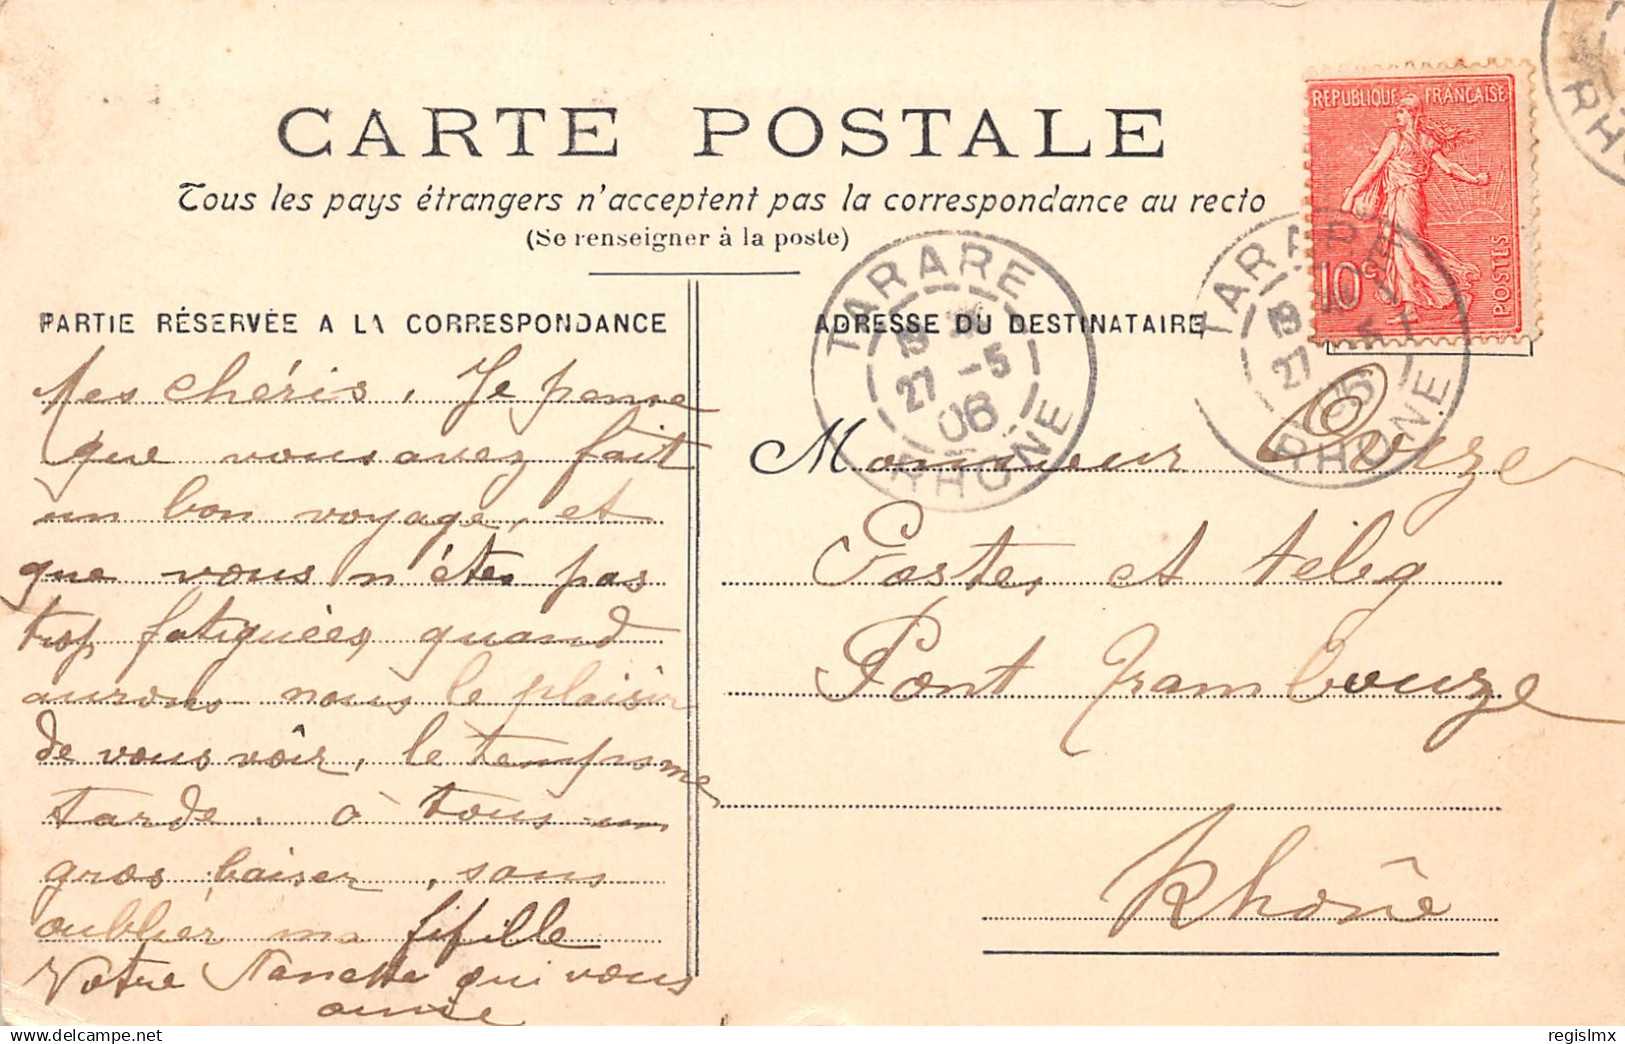 CARTE POSTALE
Tous les pays étrangers n'acceptent pas la correspondance au recto
(Se renseigner à la poste)
REPUBLIQUE FRANÇAISE
10c
POSTES
TARARE
19
27 -5
06
RHONE
TARARE
19
27 -5
06
RHONE
RHO
PARTIE RÉSERVÉE A LA CORRESPONDANCE
Mes chéris, Je pense
que vous avez fait
un bon voyage, et
que vous n'étes pas
trop fatiguées, quand
aurons nous le plaisir
de vous voir, le temps me
tarde. à tous un
gros baiser, sans
oublier ma fifille
Votre Nanette qui vous
aime
ADRESSE DU DESTINATAIRE
Monsieur Ovize
Postes et téleg
Pont Trambouze
Rhône
delcampe.net
regislmx